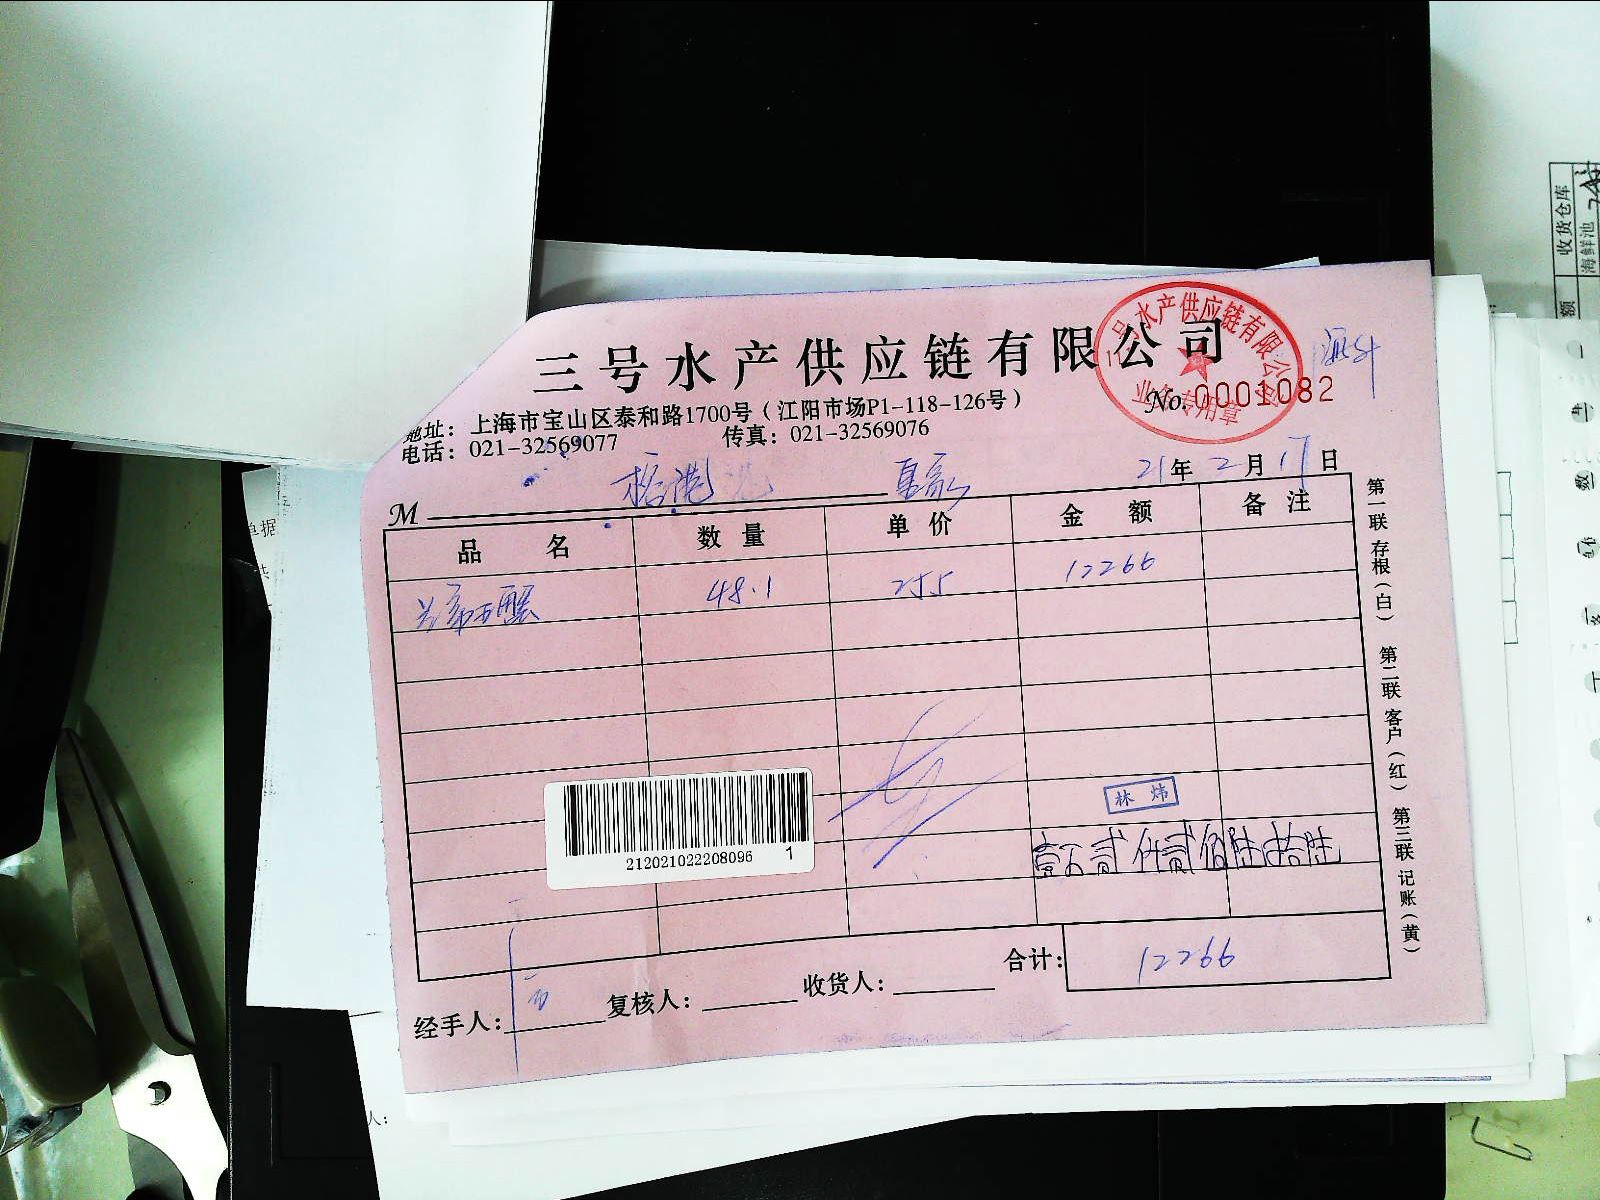 三号水产供应链有限公司
三号水产供应链有限公司
业务专用章
No. 0001082
地址：上海市宝山区泰和路1700号（江阳市场P1-118-126号）
电话：021-32569077 传真：021-32569076
21年2月17日
M
品名 数量 单价 金额 备注
蟹 48.1 255 12266
林炜
壹万贰仟贰佰陆拾陆
212021022208096 1
合计： 12266
经手人： 复核人： 收货人：
第一联 存根（白） 第二联 客户（红） 第三联 记账（黄）
收货仓库
海鲜池
额
数
单据
人：